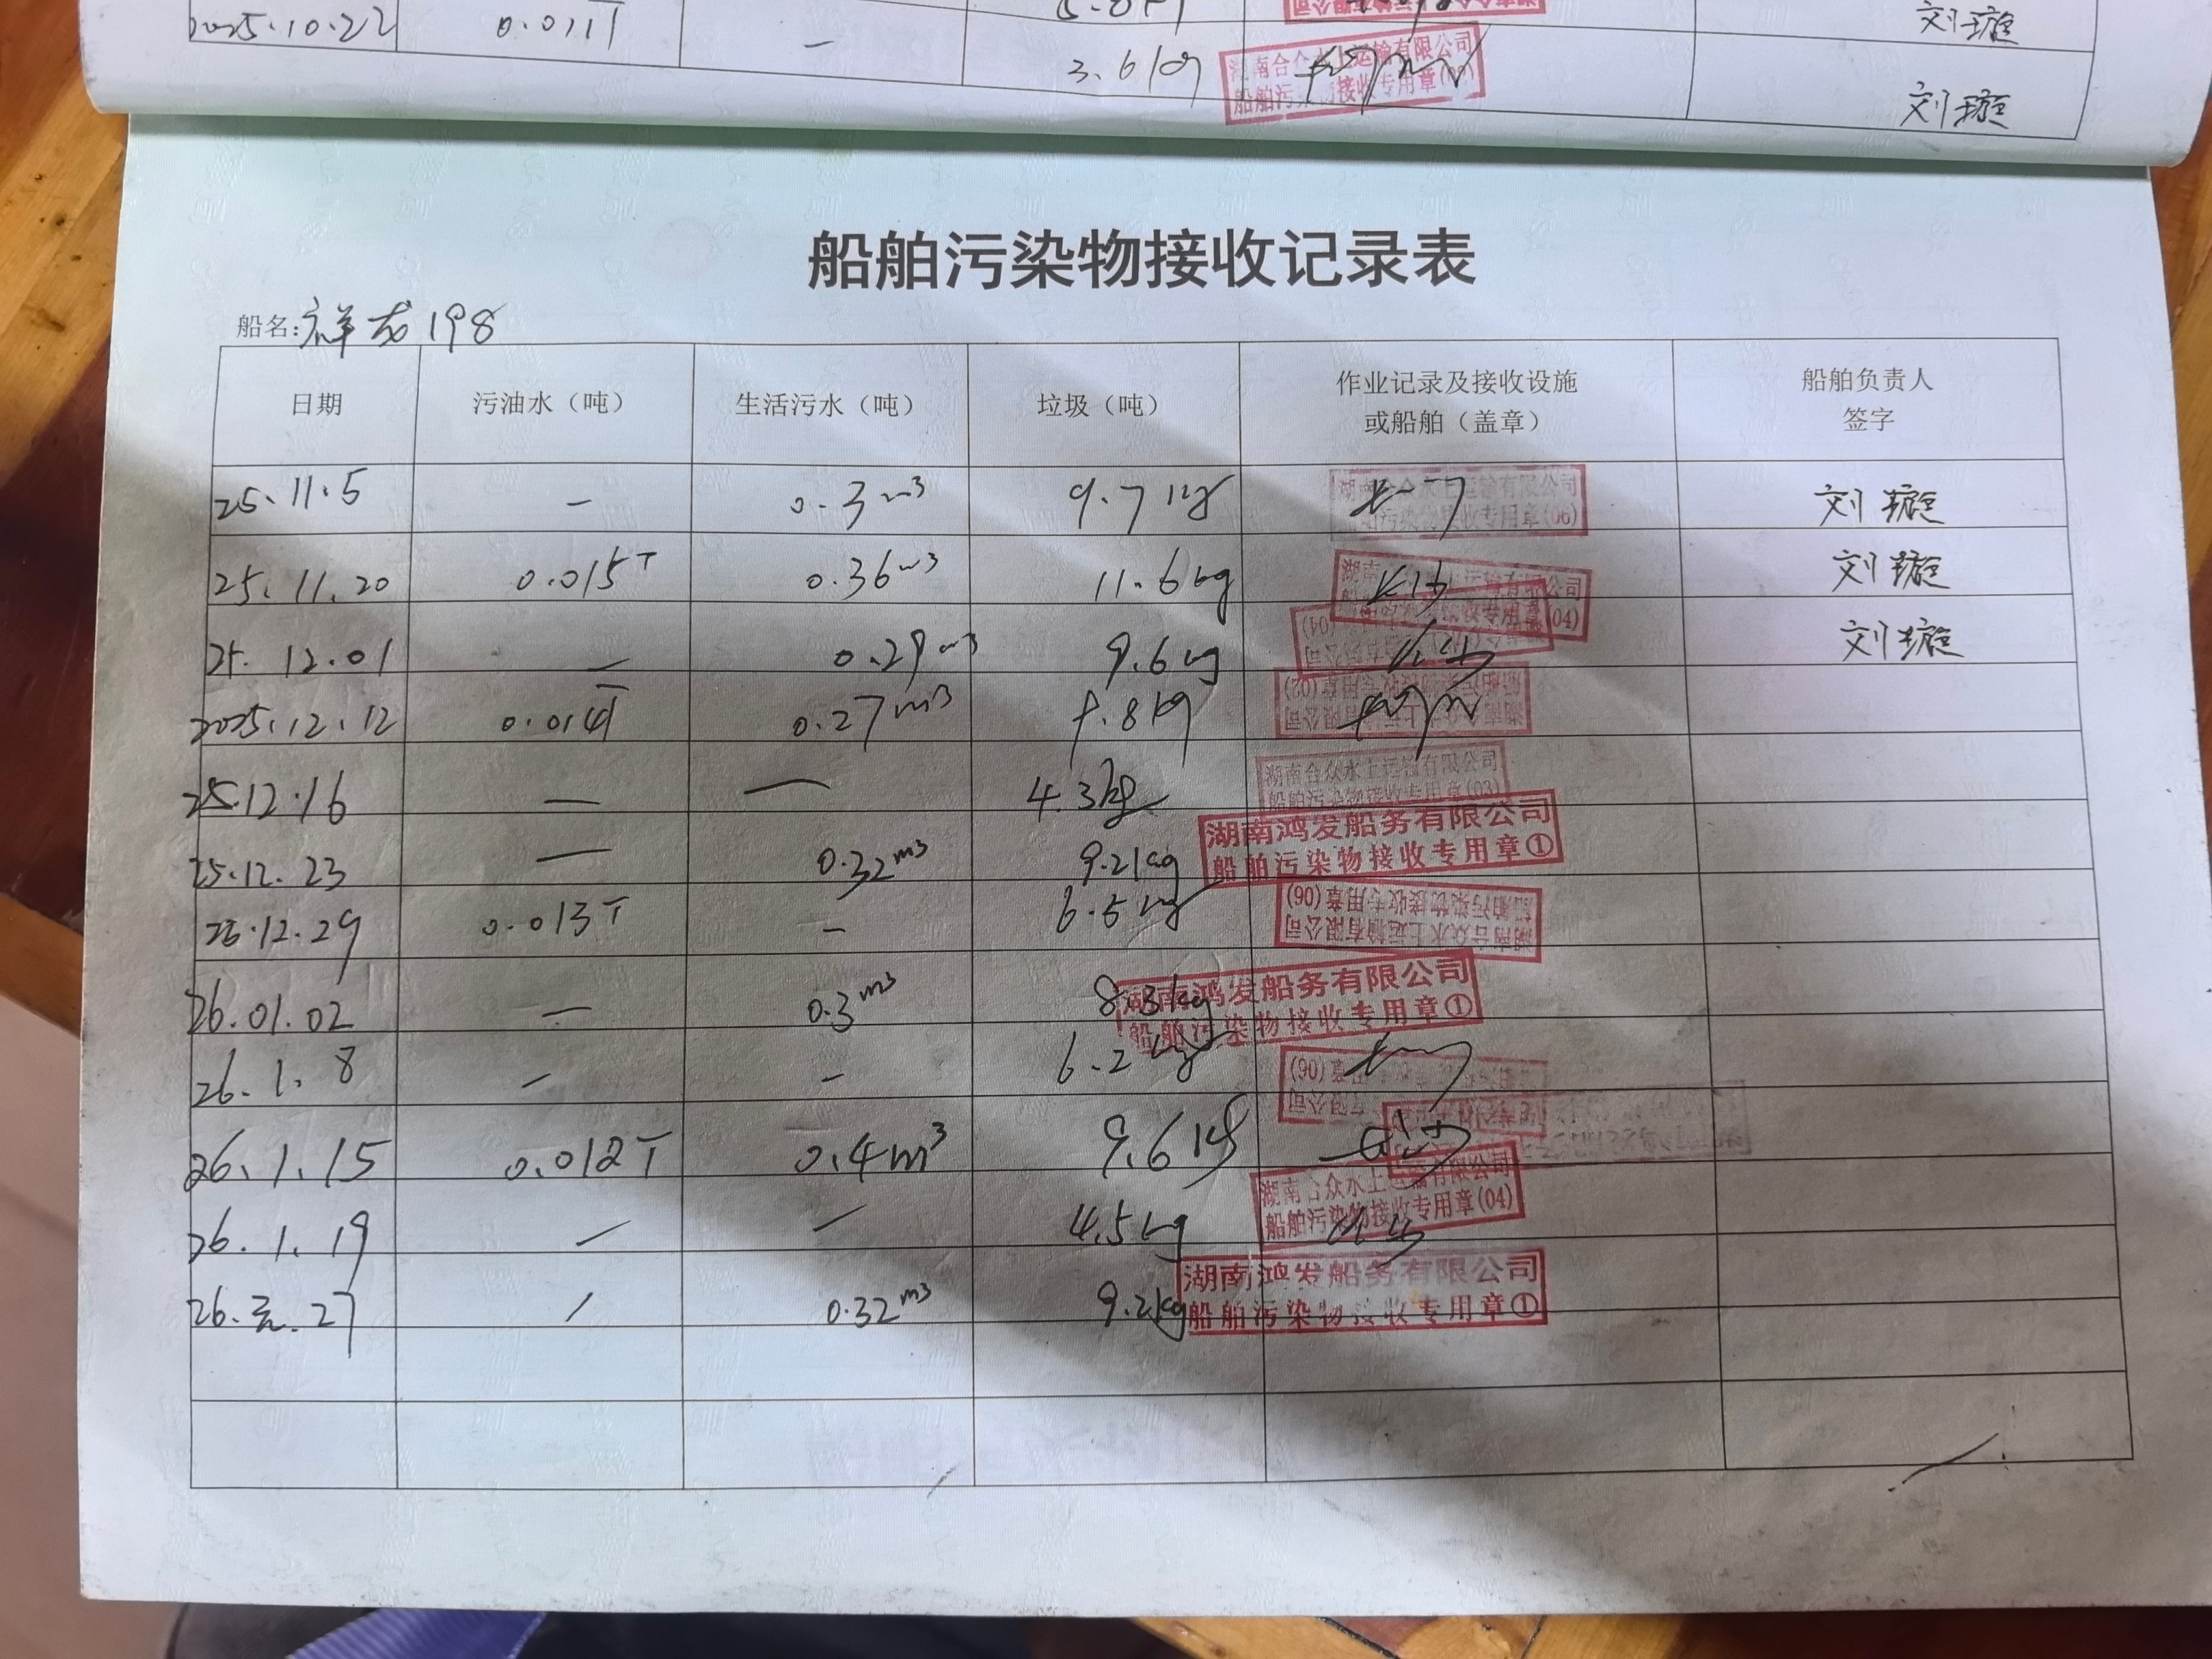 2025.10.22 0.011T 刘璇
— 3.6kg 湖南合众水上运输有限公司 刘璇
船舶污染物接收专用章
船舶污染物接收记录表
船名: 祥龙198
日期 污油水（吨） 生活污水（吨） 垃圾（吨） 作业记录及接收设施或船舶（盖章） 船舶负责人签字
25.11.5 — 0.3m³ 9.7kg 湖南合众水上运输有限公司 船舶污染物接收专用章(06) 刘璇
25.11.20 0.015T 0.36m³ 11.6kg (04) 刘璇
25.12.01 — 0.29m³ 9.6kg (04) 刘璇
2025.12.12 0.014T 0.27m³ 8kg 湖南合众水上运输有限公司 船舶污染物接收专用章(02)
25.12.16 — — 4.3kg 湖南合众水上运输有限公司 船舶污染物接收专用章(03)
25.12.23 — 0.32m³ 9.2kg 湖南鸿发船务有限公司 船舶污染物接收专用章①
25.12.29 0.013T — 6.5kg 湖南合众水上运输有限公司 船舶污染物接收专用章(06)
26.01.02 — 0.3m³ 8.3kg 湖南鸿发船务有限公司 船舶污染物接收专用章①
26.1.8 — — 6.2kg (06)
26.1.15 0.012T 0.4m³ 9.6kg
26.1.19 / / 4.5kg 湖南合众水上运输有限公司 船舶污染物接收专用章(04)
26.元.27 / 0.32m³ 9.2kg 湖南鸿发船务有限公司 船舶污染物接收专用章①